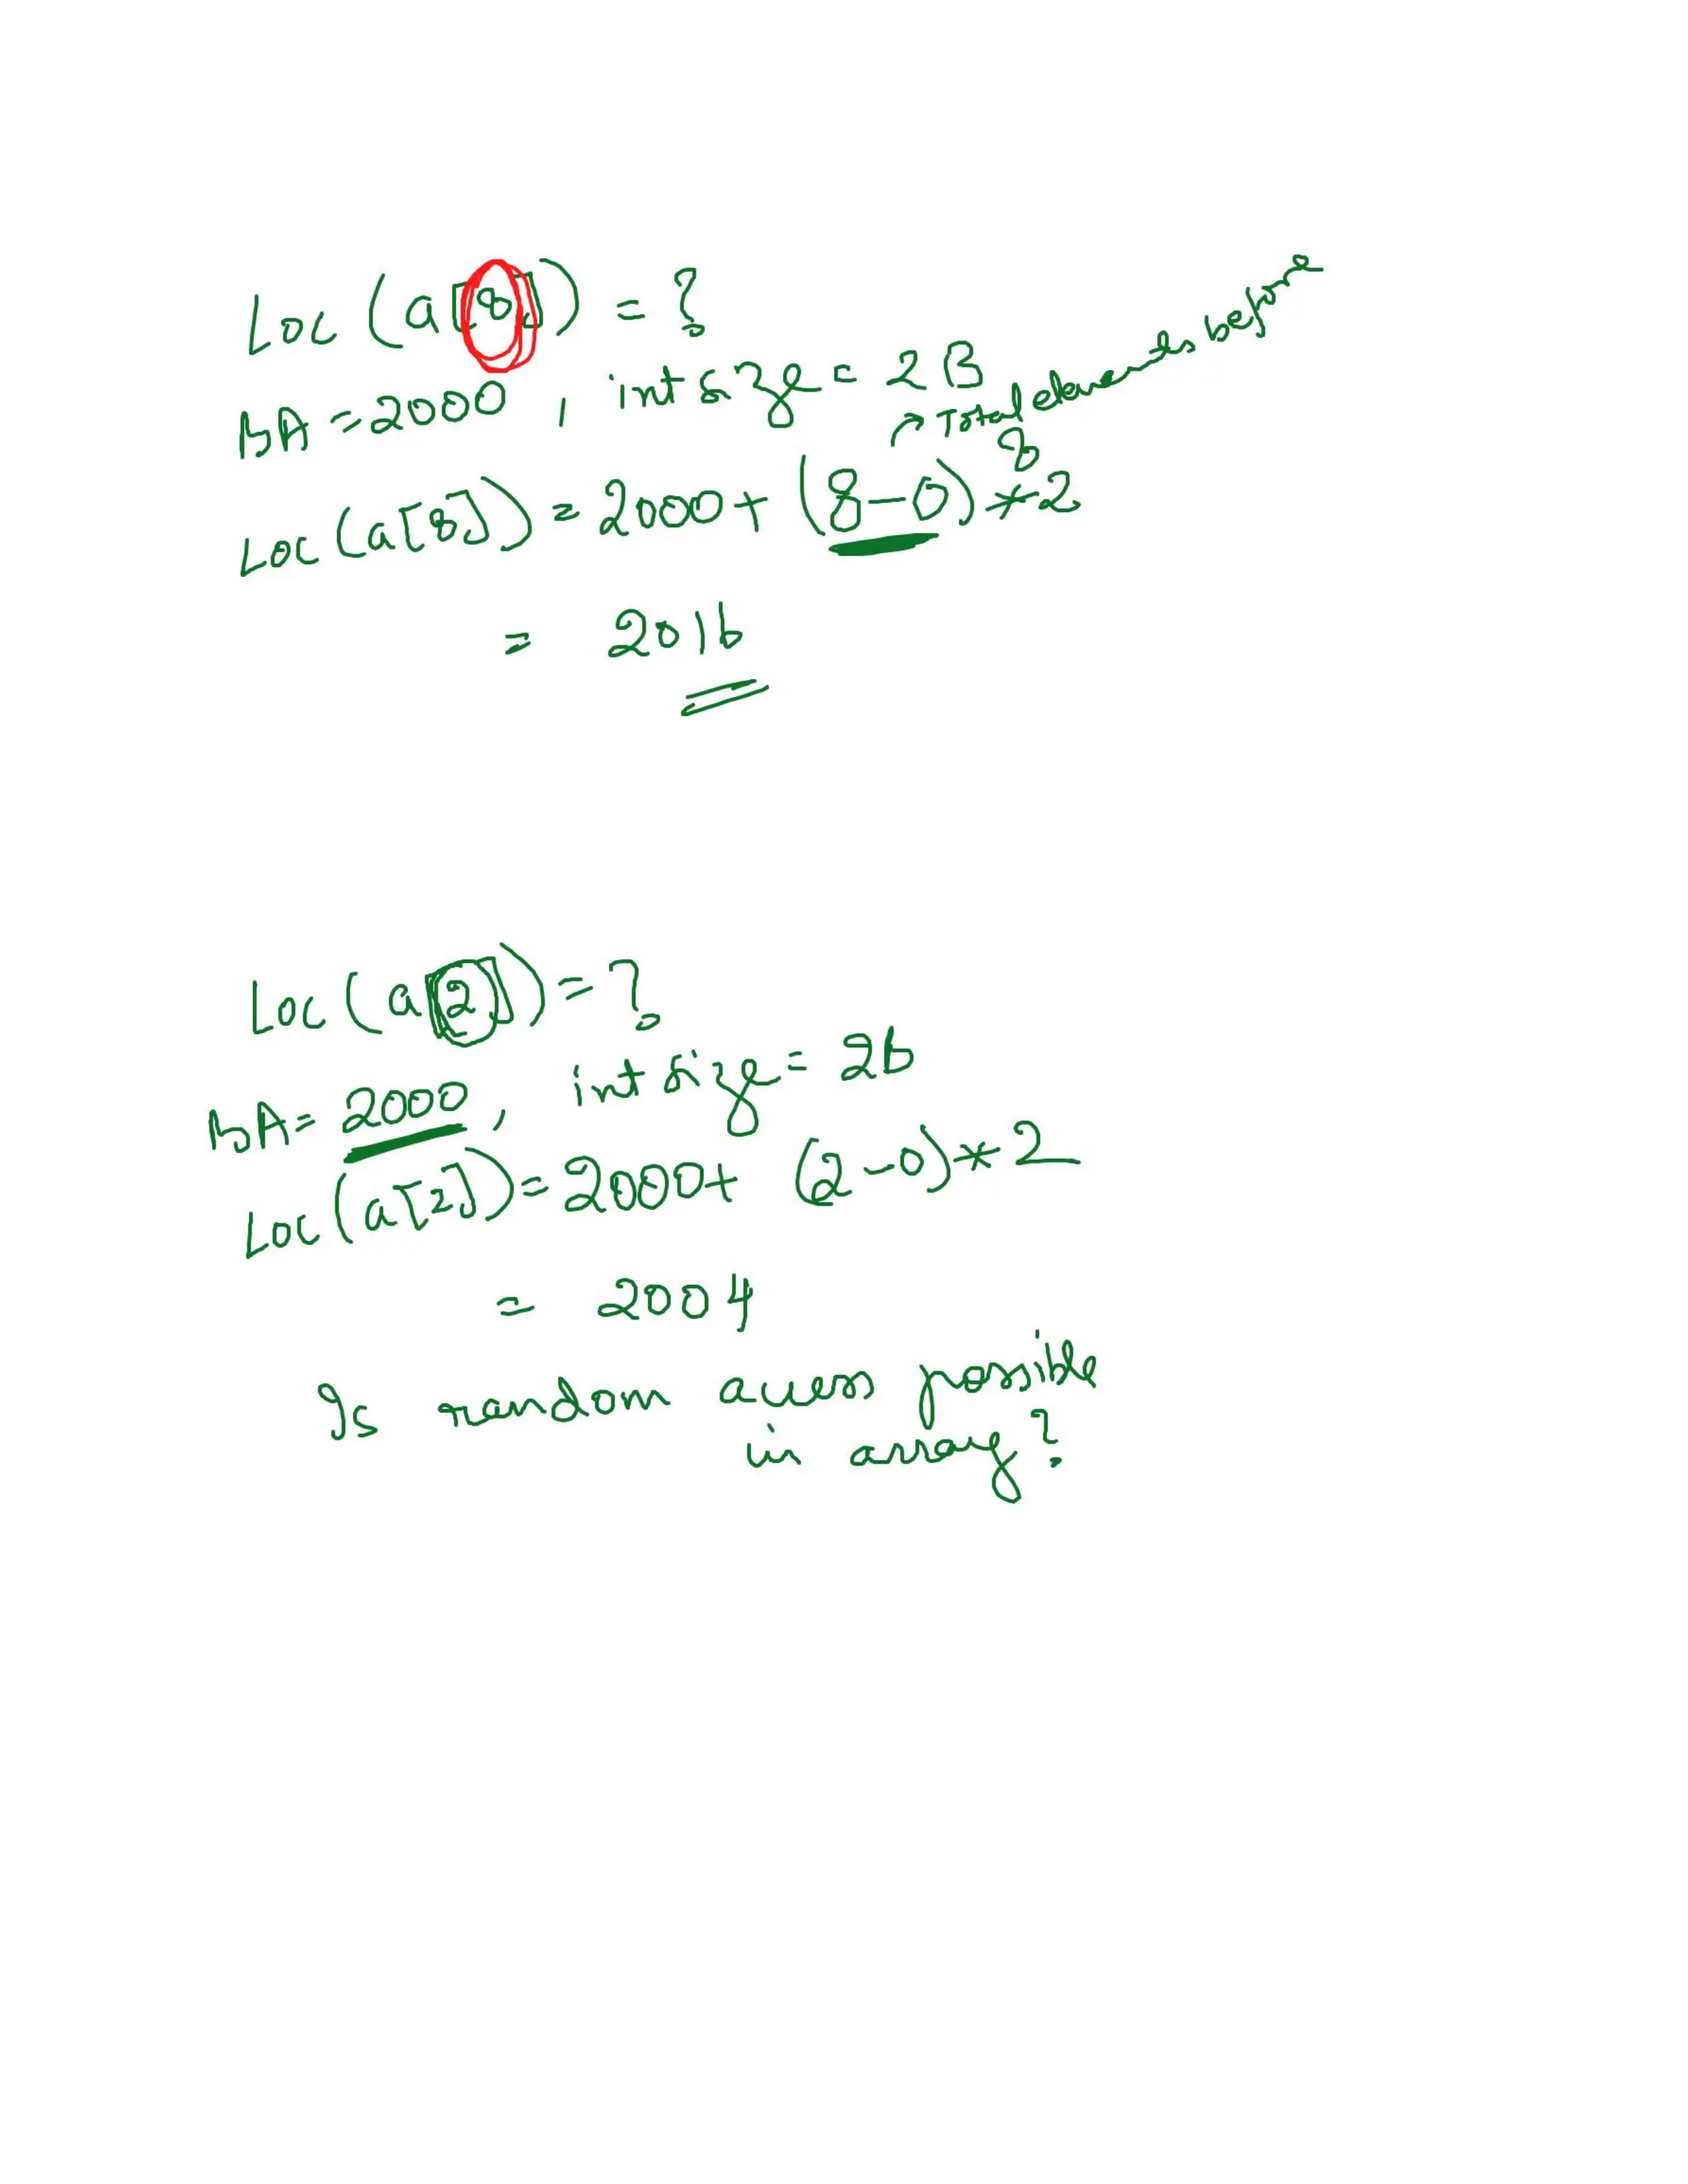 Loc (a[8]) = ?
BA = 2000, int size = 2B
→ Total elements before 8
Loc (a[8]) = 2000 + (8-0) * 2
= 2016
Loc (a[2]) = ?
BA = 2000, int size = 2B
Loc (a[2]) = 2000 + (2-0) * 2
= 2004
Is random access possible
in array?